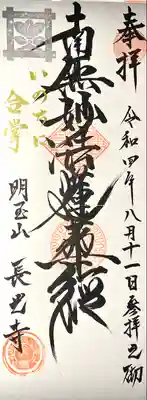 奉拝
令和四年八月十一日参拝之砌
南無妙法蓮華経
いのちに
合掌
明玉山
長出寺